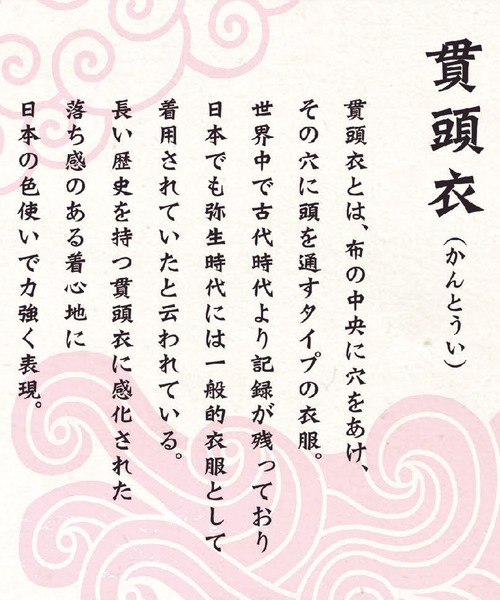 貫頭衣(かんとうい)
貫頭衣とは、布の中央に穴をあけ、
その穴に頭を通すタイプの衣服。
世界中で古代時代より記録が残っており
日本でも弥生時代には一般的衣服として
着用されていたと云われている。
長い歴史を持つ貫頭衣に感化された
落ち感のある着心地に
日本の色使いで力強く表現。